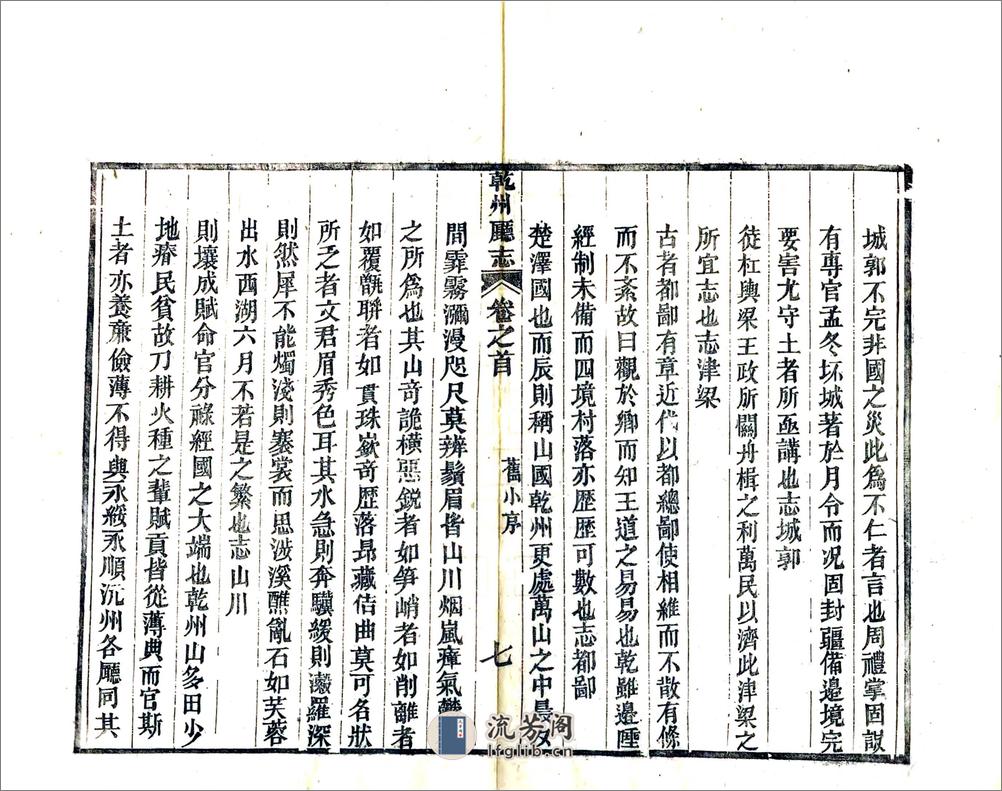 城郭不完非國之災此爲不仁者言也周禮掌固設
有專官孟冬坏城著於月令而况固封疆備邊境完
要害尤守土者所亟講也志城郭
徒杠輿梁王政所關舟楫之利萬民以濟此津梁之
所宜志也志津梁
古者都鄙有章近代以都總鄙使相維而不散有條
而不紊故曰觀於鄉而知王道之易易也乾雖邊陲
經制未備而四境村落亦歴歴可數也志都鄙
楚澤國也而辰則稱山國乾州更處萬山之中晨夕
乾州廳志
卷之首
舊小序
七
間霏霧瀰漫咫尺莫辨鬚眉皆山川烟嵐瘴氣
之所爲也其山竒詭横惡鋭者如笋峭者如削離者
如覆甑聨者如貫珠嶔竒歴落昂藏佶曲莫可名狀
所乏者文君眉秀色耳其水急則奔驥緩則瀫羅深
則然犀不能燭淺則褰裳而思涉溪醮亂石如芙蓉
出水西湖六月不若是之繁也志山川
則壤成賦命官分祿經國之大端也乾州山多田少
地瘠民貧故刀耕火種之輩賦貢皆從薄典而官斯
土者亦養亷儉薄不得與永綏永順沅州各廳同其
流芳阁
lfglib.cn